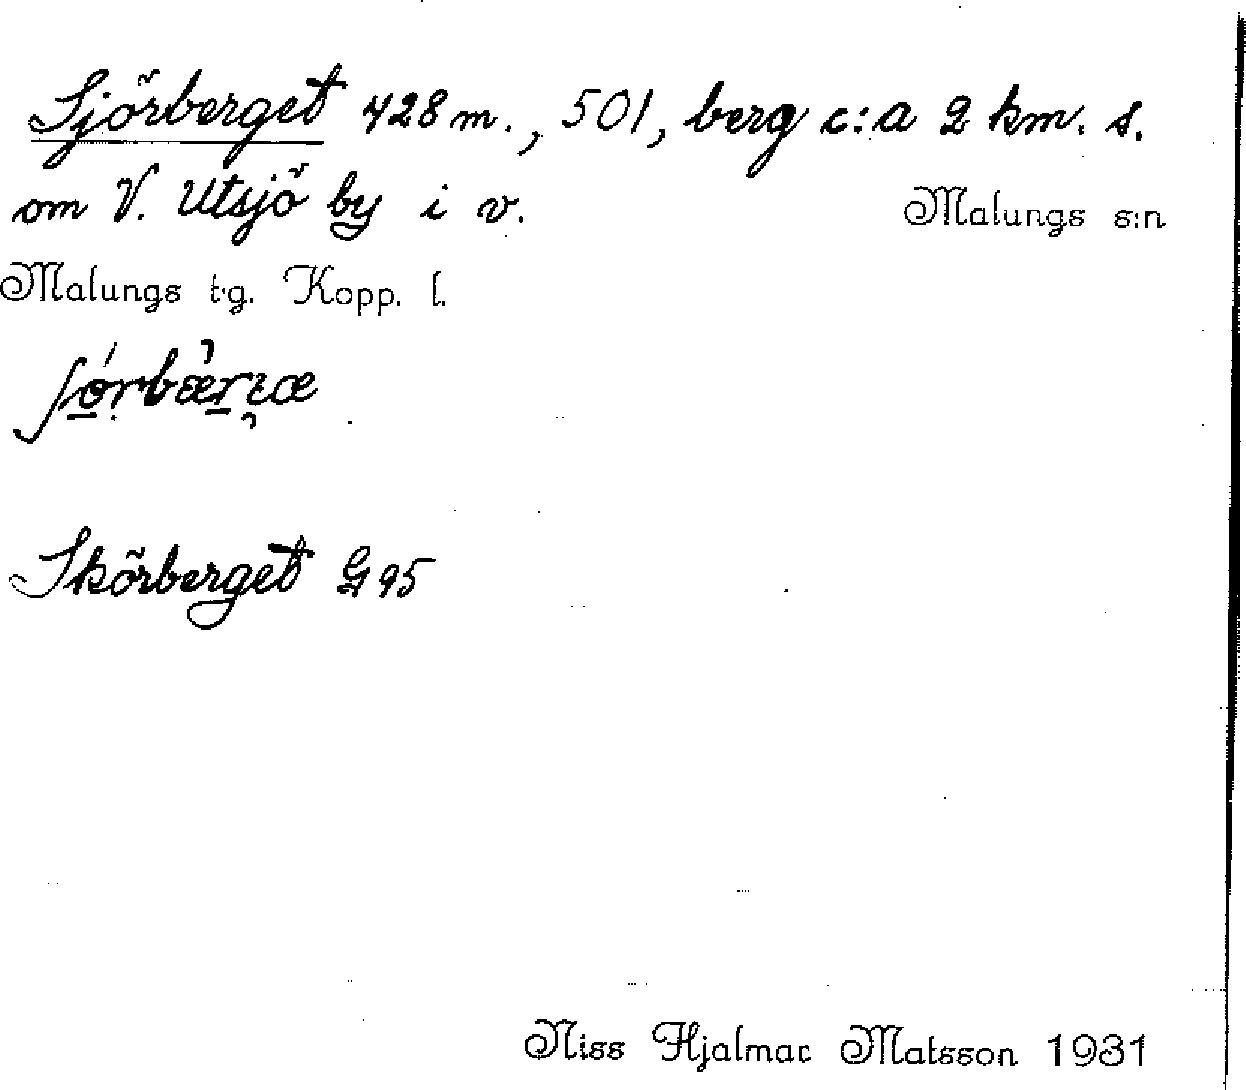 Sjörberget 428 m., 501, berg c:a 2 km. s.
om V. Utsjö by i v. Malungs s:n
Malungs t.g. Kopp. l.
Skörberget G95
Niss Hjalmar Matsson 1931